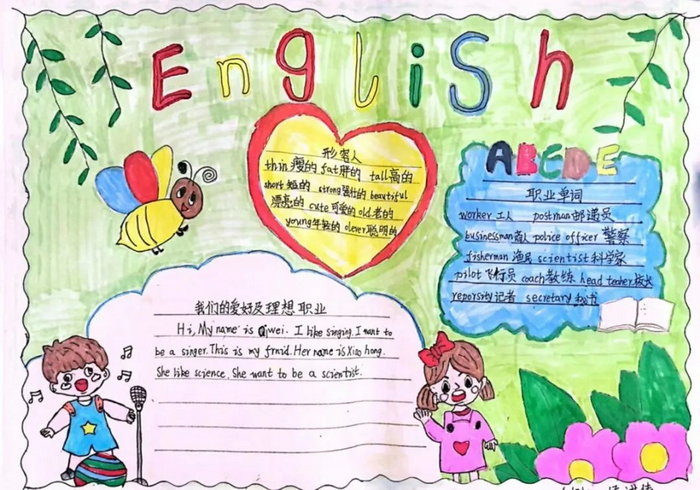 English
形容人
thin瘦的 fat胖的 tall高的
short 矮的 strong强壮的 beautiful
漂亮的 cute可爱的 old老的
young年轻的 clever聪明的
ABCDE
职业单词
worker 工人 postman邮递员
businessman商人 police officer 警察
fisherman 渔民 scientist科学家
pilot飞行员 coach教练 head teacher校长
reporsity记者 secretary秘书
我们的爱好及理想职业
Hi, My name is Qiwei. I like singing. I want to
be a singer. This is my frnid. Her name is Xiao hong.
She like science. She want to be a scientist.